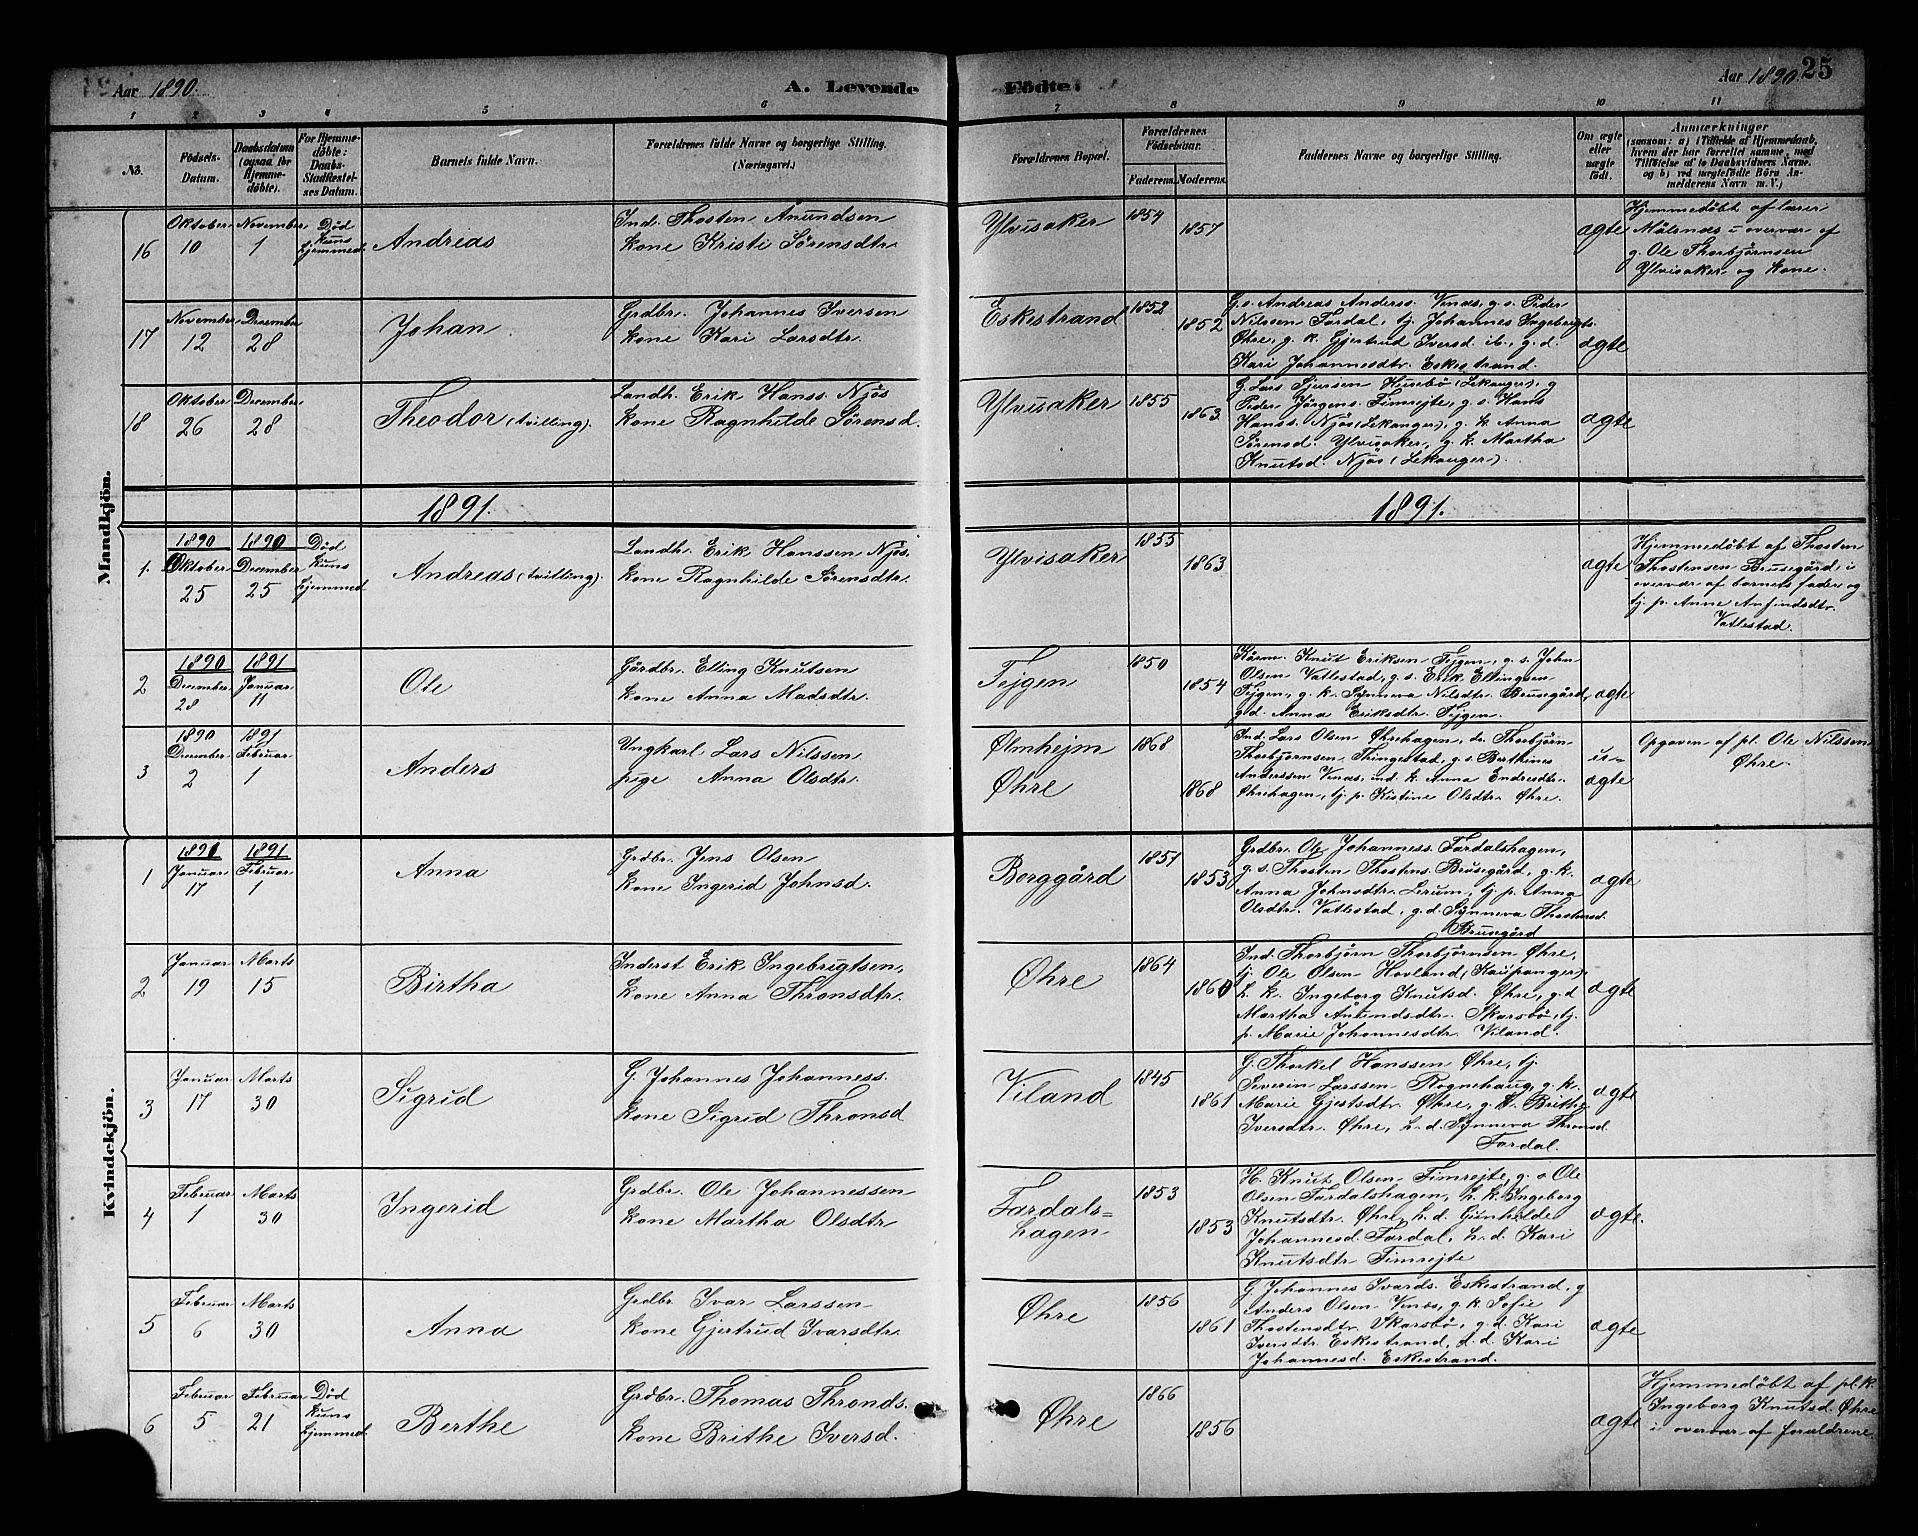 Aar 1890. A. Levende Födte. Aar 1890. 25
1 2 3 4 5 6 7 8 9 10 11
No. Födsels-Datum. Daabsdatum (ogsaa for Hjemmedöbte). For Hjemmedöbte: Daabs-Stadfæstelses Datum. Barnets fulde Navn. Forældrenes fulde Navne og borgerlige Stilling. (Næringsvei.) Forældrenes Bopæl. Forældrenes Födselsaar. Faderens. Moderens. Faddernes Navne og borgerlige Stilling. Om ægte eller uægte födt. Anmærkninger (saasom: a) i Tilfælde af Hjemmedaab, hvem der har forrettet samme, med Tilföielse af to Daabsvidners Navne, og b) ved uægtefödte Börn Anmelderens Navn m. V.)
Mandkjön.
16 Oktober 10 November 1 Död kuns hjemmed. Andreas
Ind. Thosten Anundsen
kone Kristi Sørensdtr.
Ylvisaker 1854 1857 ægte
Hjemmedøbt af lærer
Målsnæs i overvær af
g. Ole Thorbjørnsen
Ylvisaker og kone.
17 November 12 December 28 Johan
Grdbr. Johannes Iversen
kone Kari Larsdtr.
Eskestrand 1852 1852
G.s. Andreas Anderss. Vinæs, g.s. Peder
Nilssen Fardal, tj. Johannes Ingebrigts.
Øhre, g. k. Gjertrud Iversd. ib., g. d.
Kari Johannesdtr. Eskestrand.
ægte
18 Oktober 26 December 28 Theodor (tvilling).
Landh. Erik Hanss. Njøs
kone Ragnhilde Sørensd.
Ylvisaker 1855 1863
G. Lars Sjursen Husebö (Lekanger), g
Peder Jørgens. Fimrejte, g. s. Hans
Hanss. Njøs (Lekanger), g. k. Anna
Sørensd. Ylvisaker, g. k. Martha
Knutsd. Njøs (Lekanger).
ægte
1891. 1891.
1. 1890 Oktober 25 1890 December 25 Död kuns hjemmed Andreas (tvilling).
Landh. Erik Hanssen Njøs.
kone Ragnhilde Sørensdtr.
Ylvisaker 1855 1863 ægte
Hjemmedøbt af Thosten
Thostensen Brusegård, i
overvær af barnets fader og
tj. p. Anne Anfindsdtr.
Vatlestad.
2 1890 December 28 1891 Januar 11 Ole
Gårdbr. Elling Knutsen
kone Anna Madsdtr.
Fejgen 1850 1854
Kårm. Knut Eriksen Fejgen, g. s. John
Olsen Vatlestad, g.s. Erik Ellingsen
Fejgen, g. k. Synneva Nilsdtr. Brusegård,
g.d. Anna Eriksdtr. Fejgen.
ægte
3 1890 December 2 1891 Februar 1 Anders
Ungkarl Lars Nilssen
pige Anna Olsdtr.
Ølmhejm
Øhre
1868 1868
Ind. Lars Olsen Øhrehagen, do. Thorbjørn
Thorbjørnsen Thingestad, g.s. Berthines
Anderssen Vinæs, ind. k. Anna Endresdtr.
Øhrehagen, tj. p. Kistine Olsdtr. Øhre.
u-
ægte
Opgaven af pl. Ole Nilssen
Øhre.
Kvindekjön.
1 1891 Januar 17 1891 Februar 1 Anna
Grdbr. Jens Olsen
kone Ingerid Johnsd.
Borggård 1851 1853
Grdbr. Ole Johanness. Fardalshagen,
g. s. Thosten Thostens. Brusegård, g. k.
Anna Johnsdtr. Lerum, tj. p. Anna
Olsdtr. Vatlestad, g.d. Synneva Thostensd.
Brusegård
ægte
2 Januar 19 Marts 15 Birtha
Inderst Erik Ingebrigtsen,
kone Anna Thronsdtr.
Øhre 1864 1860
Ind. Thorbjørn Thorbjørnsen Øhre,
tj. Ole Olsen Hovland (Kaupanger),
h. k. Ingeborg Knutsd. Øhre, g.d
Martha Anundsdtr. Skarsbö, tj.
p. Marie Johannesdtr. Viland.
ægte
3 Januar 17 Marts 30 Sigrid
G. Johannes Johanness.
kone Sigrid Thronsd
Viland 1845 1861
G. Thorkel Hanssen Øhre, tj.
Severin Larssen Rognehaug, g. k.
Marie Gjestsdtr. Øhre, g. k. Brithe
Iversdtr. Øhre, h. d. Synneva Thronsd.
Fardal.
ægte
4 Februar 1 Marts 30 Ingerid
Grdbr. Ole Johannessen
kone Martha Olsdtr
Fardals=
hagen
1853 1853
H. Knut Olsen Fimrejte, g. s Ole
Olsen Fardalshagen, h. k. Ingeborg
Knutsdtr. Øhre, h. d. Gunhilde
Johannesd. Fardal, h. d. Kari
Knutsdtr Fimrejte
ægte.
5 Februar 6 Marts 30 Anna
Grdbr. Ivar Larssen
kone Gjertrud Ivarsdtr.
Øhre 1856 1861
G Johannes Ivards. Eskestrand, g
Anders Olsen Vinæs, g. k. Sofie
Thostensdtr. Skarsbö, g. d. Kari
Iversdtr Eskestrand, d. d. Kari
Johannesd. Eskestrand.
ægte
6 Februar 5 Februar 21 Död kuns hjemmed Berthe
Grdbr. Thomas Thronds.
kone Brithe Iversd.
Øhre 1866 1856 ægte
Hjemmedøbt af pl. k.
Ingeborg Knutsd. Øhre
i overvær af forældrene.